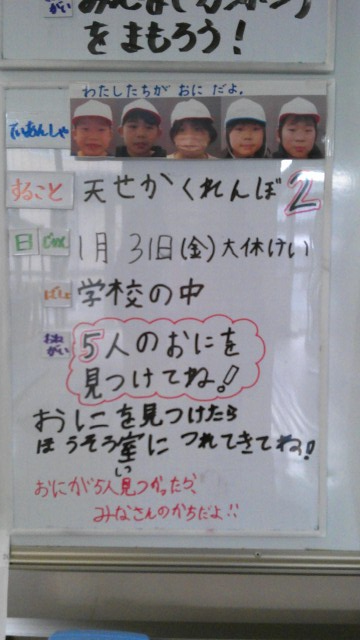 をまもろう!
わたしたちが おに だよ。
ていあんしゃ
すること 天せかくれんぼ2
日 1月 31日(金)大休けい
ばしょ 学校の中
おねがい 5人のおにを
見つけてね!
おにを見つけたら
ほうそう室につれてきてね!
しつ
おにが5人見つかったら、
みなさんのかちだよ!!